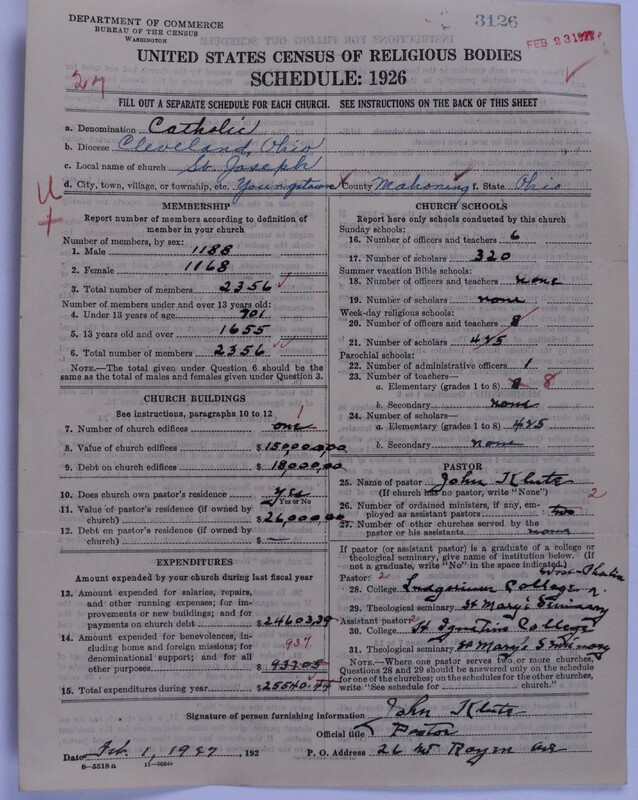 DEPARTMENT OF COMMERCE
BUREAU OF THE CENSUS
WASHINGTON
3126
FEB 23 1927
UNITED STATES CENSUS OF RELIGIOUS BODIES
SCHEDULE: 1926
27
FILL OUT A SEPARATE SCHEDULE FOR EACH CHURCH. SEE INSTRUCTIONS ON THE BACK OF THIS SHEET
a. Denomination Catholic
b. Diocese Cleveland, Ohio
c. Local name of church St. Joseph
d. City, town, village, or township, etc. Youngstown County Mahoning f. State Ohio
MEMBERSHIP
Report number of members according to definition of member in your church
Number of members, by sex:
1. Male 1188
2. Female 1168
3. Total number of members 2356
Number of members under and over 13 years old:
4. Under 13 years of age 701
5. 13 years old and over 1655
6. Total number of members 2356
NOTE.—The total given under Question 6 should be the same as the total of males and females given under Question 3.
CHURCH BUILDINGS
See instructions, paragraphs 10 to 12
7. Number of church edifices one 1
8. Value of church edifices $150,000.00
9. Debt on church edifices $18,000,00
10. Does church own pastor's residence Yes
Yes or No
11. Value of pastor's residence (if owned by church) $26,000,00
12. Debt on pastor's residence (if owned by church) $ —
EXPENDITURES
Amount expended by your church during last fiscal year
13. Amount expended for salaries, repairs, and other running expenses; for improvements or new buildings; and for payments on church debt $24603,39
14. Amount expended for benevolences, including home and foreign missions; for denominational support; and for all other purposes $937.05
937
15. Total expenditures during year $25540.44
CHURCH SCHOOLS
Report here only schools conducted by this church
Sunday schools:
16. Number of officers and teachers 6
17. Number of scholars 320
Summer vacation Bible schools:
18. Number of officers and teachers none
19. Number of scholars none
Week-day religious schools:
20. Number of officers and teachers 8
21. Number of scholars 485
Parochial schools:
22. Number of administrative officers 1
23. Number of teachers—
a. Elementary (grades 1 to 8) 8 8
b. Secondary none
24. Number of scholars—
a. Elementary (grades 1 to 8) 485
b. Secondary none
PASTOR
25. Name of pastor John Klute
(If church has no pastor, write "None")
26. Number of ordained ministers, if any, employed as assistant pastors two 2
27. Number of other churches served by the pastor or his assistants none
If pastor (or assistant pastor) is a graduate of a college or theological seminary, give name of institution below. (If not a graduate, write "No" in the space indicated.)
Pastor: 2
28. College College
29. Theological seminary St Mary's Seminary
Assistant pastor: 2
30. College St Ignatius College
31. Theological seminary St Mary's Seminary
NOTE.—Where one pastor serves two or more churches, Questions 28 and 29 should be answered only on the schedule for one of the churches; on the schedules for the other churches, write "See schedule for church."
Signature of person furnishing information John Klute
Official title Pastor
Date Feb. 1, 1927, 192 P. O. Address 26 W Rayen Ave
8—5518 a